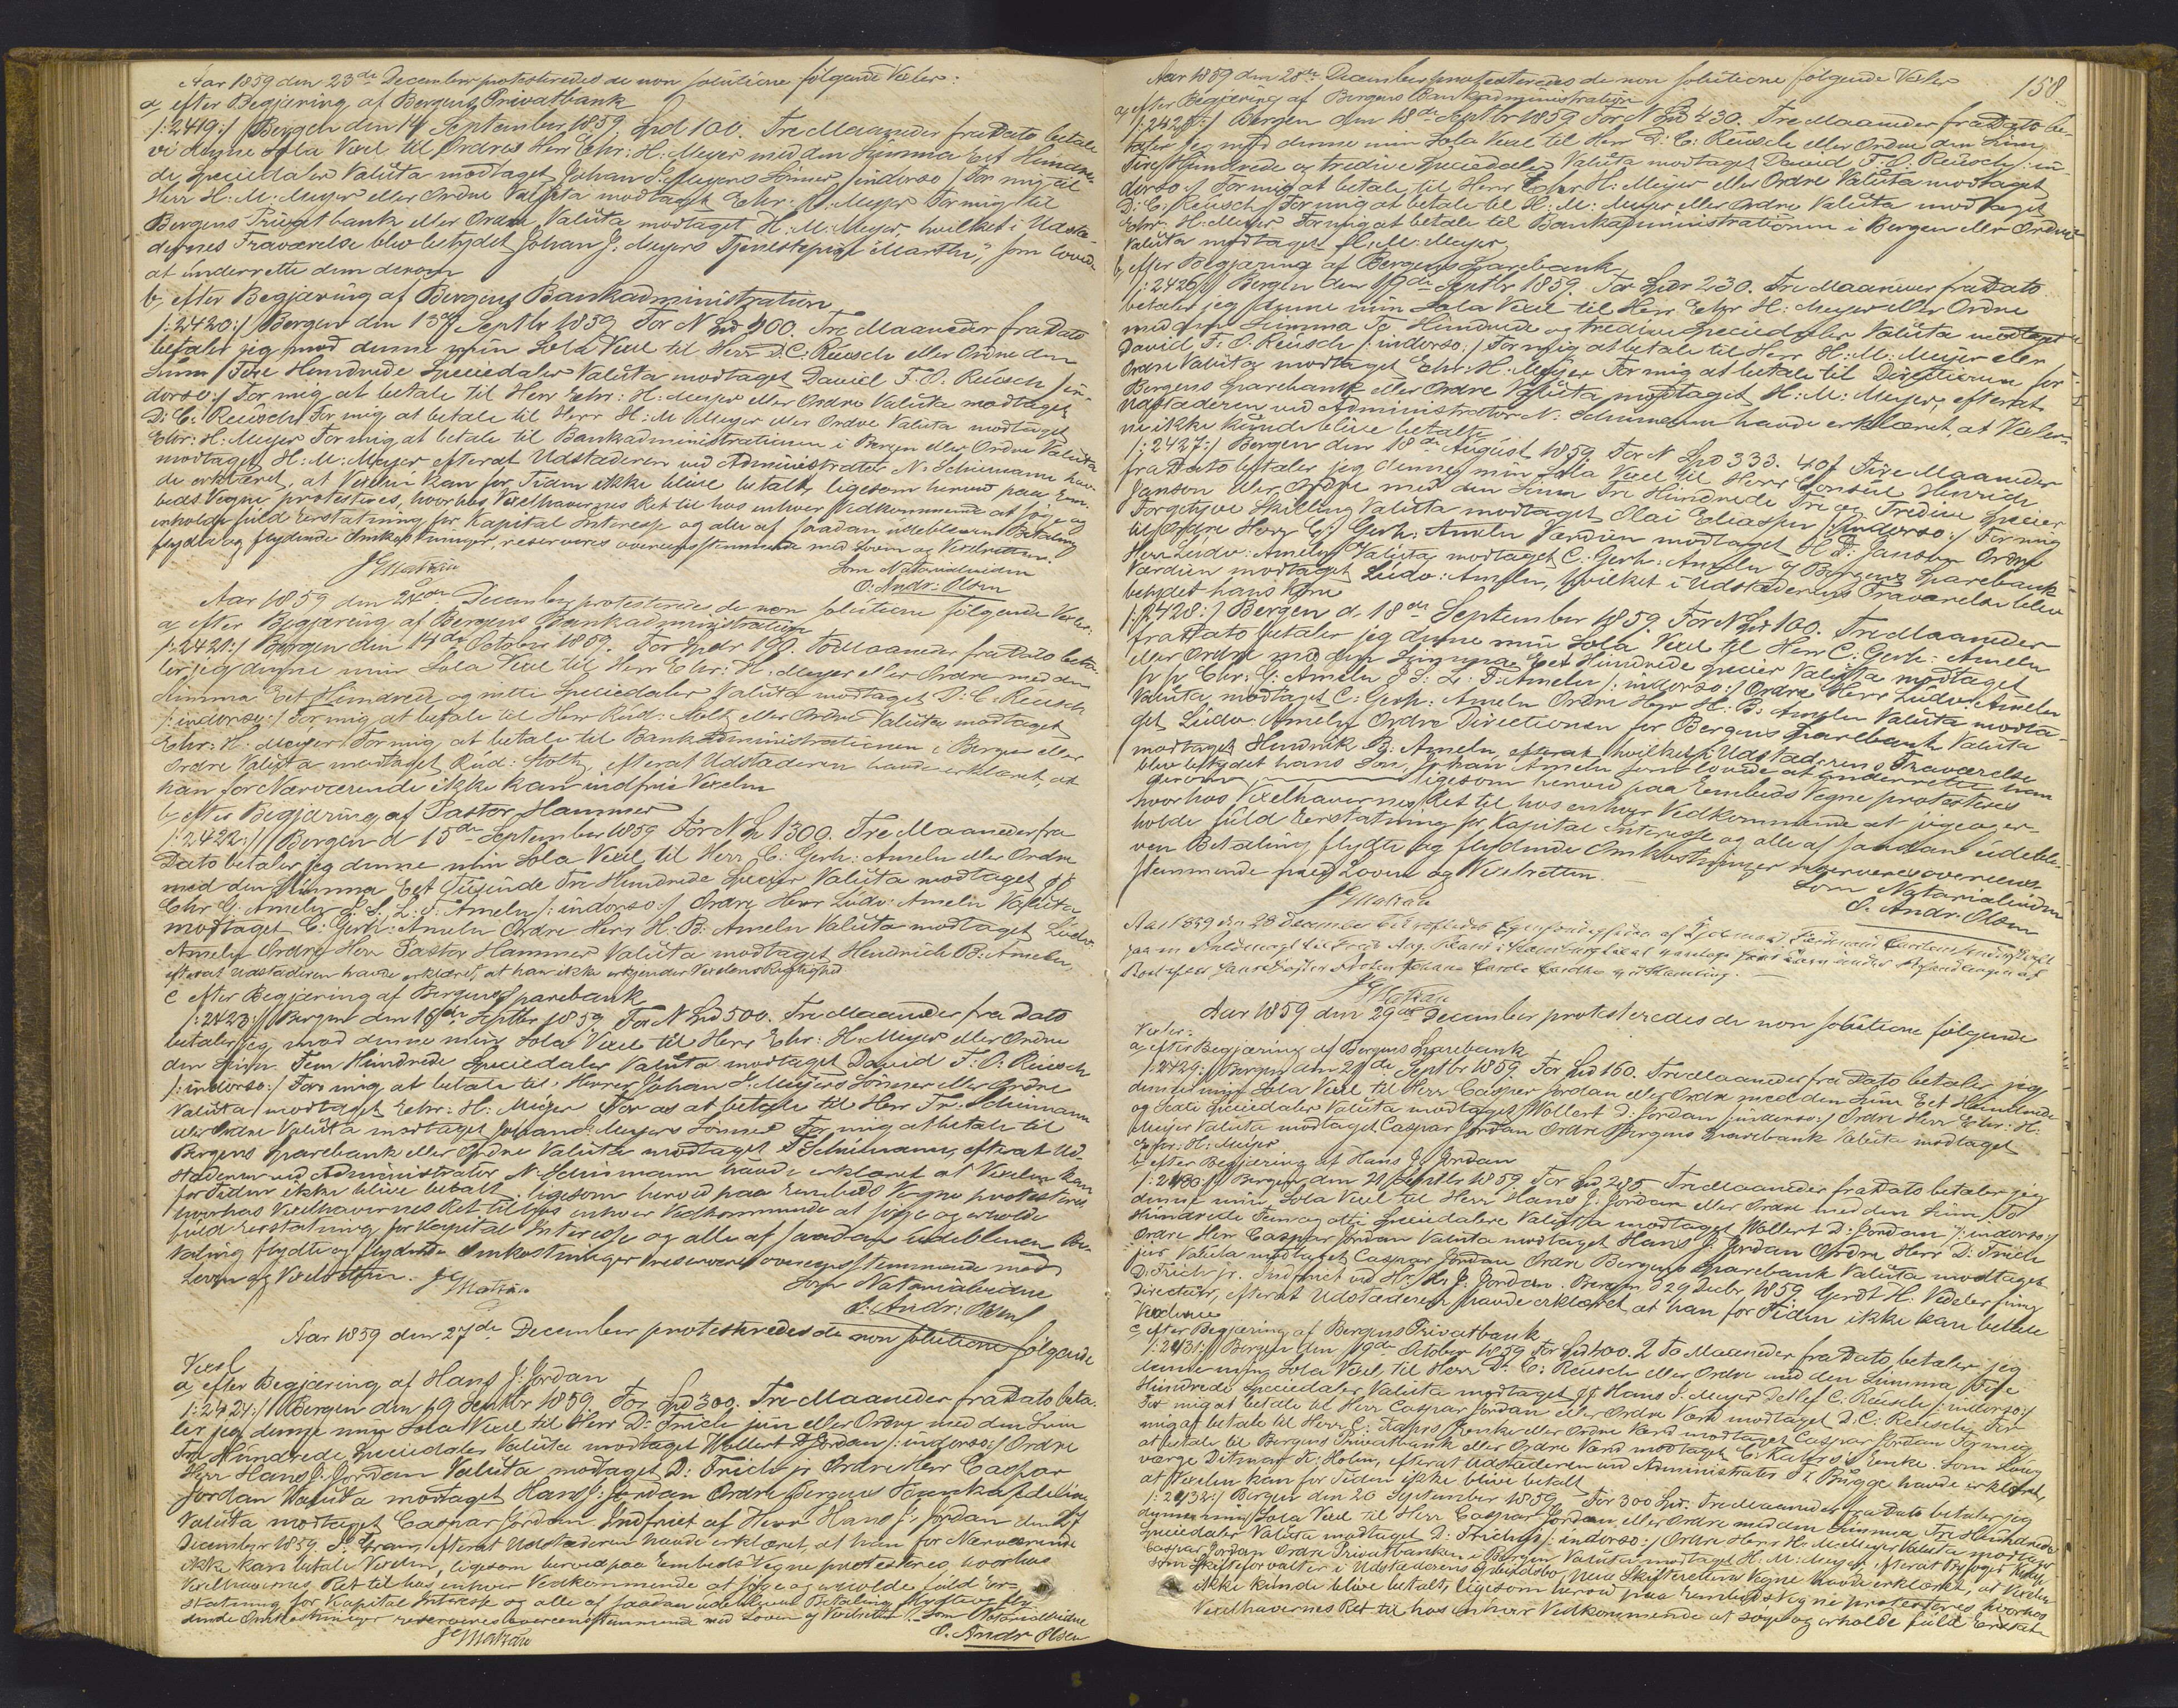 Aar 1859 den 23de December protesteredes de non solutione følgende Vexler:
a, efter Begjæring af Bergens Privatbank
/:2419:/ Bergen den 14 September 1859, Spd 100. Tre Maaneder fra Dato betale
vi denne Sola Vexel til Ordres Herr Ehr: H: Meyer med den Summa Eet Hundre-
de Speciedaler Valuta modtaget Johan S. Meyers Sönner /indorso/ For mig til
Herr H: M: Meyer eller Ordre Valuta modtaget Ehr: H: Meyer For mig til
Bergens Privatbank eller Ordre, Valuta modtaget H: M: Meyer, hvilket i Udste-
dernes Fraværelse blev betydet Johan S. Meyers Tjenestepige "Marthe", som lovede
at underrette dem derom
b, efter Begjæring af Bergens Bankadministration
/:2420:/ Bergen den 13de Septbr 1859 For N Spd 400. Tre Maaneder fra Dato
betaler jeg mod denne min Sola Vexel til Herr D. C. Reusch eller Ordre den
Summa Fire Hundrede Speciedaler Valuta modtaget David F. O. Reusch /:in-
dorso:/ For mig at betale til Herr Ehr: H: Meyer eller Ordre Valuta modtaget
D: C: Reusch For mig at betale til Herr H: M Meyer eller Ordre Valuta modtaget
Ehr: H: Meyer For mig at betale til Bankadministrationen i Bergen eller Ordre Valuta
modtaget H: M: Meyer efterat Udstæderen ved Administrator N. Schumann hav-
de erklæret, at Vexelen kan for Tiden ikke blive betalt, ligesom herved paa Em-
beds Vegne protesteres, hvorhos Vexelhavernes Ret til hos enhver Vedkommende at søge og
erholde fuld Erstatning for Kapital Interesse og alle af saadan udebleven Betaling
flydte og flydende Omkostninger, reserveres overensstemmende med Loven og Vexelretten.
Som Notarialvidne
O. Andr: Olsen
Aar 1859 den 24de December protesteredes de non solutione følgende Vexler:
a, efter Begjæring af Bergens Bankadministration
/:2421:/ Bergen den 14de October 1859. For Spdr 190. To Maaneder fra Dato beta-
ler jeg denne min Sola Vexel til Herr Ehr: H: Meyer eller Ordre med den
Summa Eet Hundrede og nitti Speciedaler Valuta modtaget D: C. Reusch
/:indorso:/ For mig at betale til Herr Rud: Stolt eller Ordre Valuta modtaget
Ehr: H: Meyer For mig at betale til Bankadministrationen i Bergen eller
Ordre Valuta modtaget Rud: Stolt, efterat Udstæderen havde erklæret, at
han for Nærværende ikke kan indfrie Vexelen
b, efter Begjæring af Pastor Hammer
/:2422:/ Bergen d 15de September 1859 For N 1300. Tre Maaneder fra
Dato betaler jeg denne min Sola Vexel til Herr C: Gerh: Ameln eller Ordre
med den Summa Eet Tusinde Tre Hundrede Specier Valuta modtaget pp
Chr G: Ameln L. F: Ameln /:indorso:/ Ordre Herr Ludv: Ameln Valuta
modtaget C: Gerh: Ameln Ordre Herr H: B: Ameln Valuta modtaget Ludv:
Ameln Ordre Herr Pastor Hammer Valuta modtaget Hendrich B: Ameln,
efterat Udstæderen havde erklæret, at han ikke erkjender Vexelens Rigtighed
c efter Begjæring af Bergens Sparebank
/:2423:/ Bergen den 16de Septbr 1859. For N Spd 500. Tre Maaneder fra Dato
betaler jeg mod denne min Sola Vexel til Herr Ehr: H: Meyer eller Ordre
den Sum Fem Hundrede Speciedaler Valuta modtaget David F. O: Reusch
/:indorso:/ For mig at betale til Herrer Johan S. Meyers Sönner eller Ordre
Valuta modtaget Ehr: H: Meyer For os at betale til Herr Fr: Schumann
eller Ordre Valuta modtaget Johan S. Meyers Sönner For mig at betale til
Bergens Sparebank eller Ordre Valuta modtaget F Schumann, efterat Ud-
stæderen ved Administrator N. Schumann havde erklæret at Vexelen kan
for Tiden ikke blive betalt, ligesom herved paa Embeds Vegne protesteres
hvorhos Vexelhavernes Ret til hos enhver Vedkommende at søge og erholde
fuld Erstatning for Kapital Interesse og alle af saadan udebleven Be-
taling flydte og flydende Omkostninger reserveres overensstemmende med
Loven og Vexelretten.
Som Notarialvidne
O. Andr: Olsen
Aar 1859 den 27de December protesteredes de non solutione følgende
Vexel
a, efter Begjæring af Hans J: Jordan
/:2424:/ Bergen den 19 Septbr 1859. For Spd 300. Tre Maaneder fra Dato beta-
ler jeg denne min Sola Vexel til Herr D: Frich jun eller Ordre med den Sum
Tre Hundrede Speciedaler Valuta modtaget Wollert D Jordan /:indorso:/ Ordre
Herr Hans J. Jordan Valuta modtaget D: Frich jr Ordre Herr Caspar
Jordan Valuta modtaget Hans J: Jordan Ordre Bergens Bankafdeling
Valuta modtaget Caspar Jordan. Indfriet af Herr Hans J: Jordan den 27
December 1859. efterat Udstæderen havde erklæret, at han for Nærværende
ikke kan betale Vexelen, ligesom herved paa Embeds Vegne protesteres hvorhos
Vexelhavernes Ret til hos enhver Vedkommende at søge og erholde fuld Er-
statning for Kapital Interesse og alle af saadan udebleven Betaling flydte og fly-
dende Omkostninger reserveres overensstemmende med Loven og Vexelretten. Som Notarialvidne
O. Andr Olsen
158
Aar 1859 den 28de December protesteredes de non solutione følgende Vexler
a, efter Begjæring af Bergens Bankadministration
/:2425:/ Bergen den 18de Septbr 1859 For N Spd 430. Tre Maaneder fra Dato be-
taler jeg mod denne min Sola Vexel til Herr D: C: Reusch eller Ordre den Sum
Fire Hundrede og tredive Speciedaler Valuta modtaget David F. O. Reusch /:in-
dorso:/ For mig at betale til Herr Ehr H: Meyer eller Ordre Valuta modtaget
D: C: Reusch For mig at betale til H: M: Meyer eller Ordre Valuta modtaget
Ehr. H: Meyer For mig at betale til Bankadministrationen i Bergen eller Ordre
Valuta modtaget H: M: Meyer,
b, efter Begjæring af Bergens Sparebank
/:2426:/ Bergen den 19de Septbr 1859. For Spdr 230. Tre Maaneder fra Dato
betaler jeg denne min Sola Vexel til Herr Ehr H: Meyer eller Ordre
med den Summa To Hundrede og tredive Speciedaler Valuta modtaget
David F: O. Reusch /:indorso:/ For mig at betale til Herr H: M: Meyer eller
Ordre Valuta modtaget Ehr: H: Meyer For mig at betale til Directionen for
Bergens Sparebank eller Ordre Valuta modtaget H: M: Meyer, efterat
Udstæderen ved Administrator N. Schumann havde erklæret, at Vexler-
ne ikke kunde blive betalte
/:2427:/ Bergen den 18de August 1859 For N Spd 333. 40 f Fire Maaneder
fra Dato betaler jeg denne min Sola Vexel til Herr Consul Henrich
Janson eller Ordre med den Sum Tre Hundrede Tre og Tredive Specier
Førgetyve Skilling Valuta modtaget Olai Eliassen /:indorso:/ For mig
til Ordre Herr C: Gerh: Ameln Værdien modtaget H D: Janson Ordre
Herr Ludv: Ameln Valuta modtaget C: Gerh: Ameln Bergens Sparebank
Værdien modtaget Ludv: Ameln, hvilket i Udstæderens Fraværelse blev
betydet hans Kone
/:2428:/ Bergen d. 18de September 1859. For N Spd 100. Tre Maaneder
fra Dato betaler jeg denne min Sola Vexel til Herr C: Gerh: Ameln
eller Ordre med den Summa Eet Hundrede Specier Valuta modtaget
pp Chr: G: Ameln L. F: Ameln /:indorso:/ Ordre Herr Ludv: Ameln
Valuta modtaget C: Gerh: Ameln Ordre Herr H: B: Ameln Valuta modta-
get Ludv: Ameln Ordre Directionen for Bergens Sparebank Valuta
modtaget Hendrik B: Ameln, efterat hvilket i Udstæderens Fraværelse
blev betydet hans Søn, Johan Ameln som lovede at underrette ham
derom, ligesom herved paa Embeds Vegne protesteres
hvorhos Vexelhavernes Ret til hos enhver Vedkommende at søge og er-
holde fuld Erstatning for Kapital Interesse og alle af saadan udeble-
ven Betaling flydte og flydende Omkostninger reserveres overens-
stemmende med Loven og Vexelretten.
Som Notarialvidne
O. Andr: Olsen
Aar 1859 den 28 December
Aar 1859 den 29de December protesteredes de non solutione følgende
Vexler:
a, efter Begjæring af Bergens Sparebank
/:2429:/ Bergen den 21de Septbr 1859 For Spd 160. Tre Maaneder fra Dato betaler jeg
denne min Sola Vexel til Herr Caspar Jordan eller Ordre med den Sum Eet Hundrede
og Sexti Speciedaler Valuta modtaget Wollert D: Jordan /:indorso:/ Ordre Herr Ehr: H:
Meyer Valuta modtaget Caspar Jordan Ordre Bergens Sparebank Valuta modtaget
Ehr: H: Meyer
b, efter Begjæring af Hans J. Jordan
/:2430:/ Bergen den 21 Septbr 1859 For Spd 285 Tre Maaneder fra Dato betaler jeg
denne min Sola Vexel til Herr Hans J. Jordan eller Ordre med den Sum To
Hundrede Fem og otti Speciedalere Valuta modtaget Wollert D: Jordan /:indorso:/
Ordre Herr Caspar Jordan Valuta modtaget Hans J. Jordan Ordre Herr D: Frich
jun Valuta modtaget Caspar Jordan Ordre Bergens Sparebank Valuta modtaget
D: Frich jr. Indfriet ved Hr H. J. Jordan. Bergen d 29 Decbr 1859 Gerdt H: Vedeler fung
Directeur, efterat Udstæderen havde erklæret, at han for Tiden ikke kan betale
Vexlerne
c, efter Begjæring af Bergens Privatbank
/:2431:/ Bergen den 19de October 1859 For Spd 400. 2 To Maaneder fra Dato betaler jeg
denne min Sola Vexel til Herr D: C: Reusch eller Ordre med den Summa Fire
Hundrede Speciedaler Valuta modtaget pp Hans S. Meyer Detlef C: Reusch /:indorso:/
For mig at betale til Herr Caspar Jordan eller Ordre Værd modtaget D. C: Reusch For
mig at betale til Herr C: Kahrs Henke eller Ordre Værd modtaget Caspar Jordan For mig
at betale til Bergens Privatbank eller Ordre Værd modtaget C: Kahrs Henke. Som Laug-
værge Ditman K: Holm, efterat Udstæderen ved Administrator Fr Brügge havde erklæret,
at Vexelen kan for Tiden ikke blive betalt
/:2432:/ Bergen den 20 September 1859 For 300 Spd. Tre Maaneder fra Dato betaler jeg
denne min Sola Vexel til Herr Caspar Jordan eller Ordre med den Summa Tre Hundrede
Speciedaler Valuta modtaget D: Frich jr /:indorso:/ Ordre Herr H: M: Meyer Valuta modtaget
Caspar Jordan Ordre Privatbanken i Bergen Valuta modtaget H: M: Meyer efterat Byfoged
som Skifteforvalter i Udstæderens Opbudsbo paa Skifterettens Vegne havde erklæret, at Vexelen
ikke kunde blive betalt, ligesom herved paa Embeds Vegne protesteres hvorhos
Vexelhavernes Ret til hos enhver Vedkommende at søge og erholde fuld Erstat-